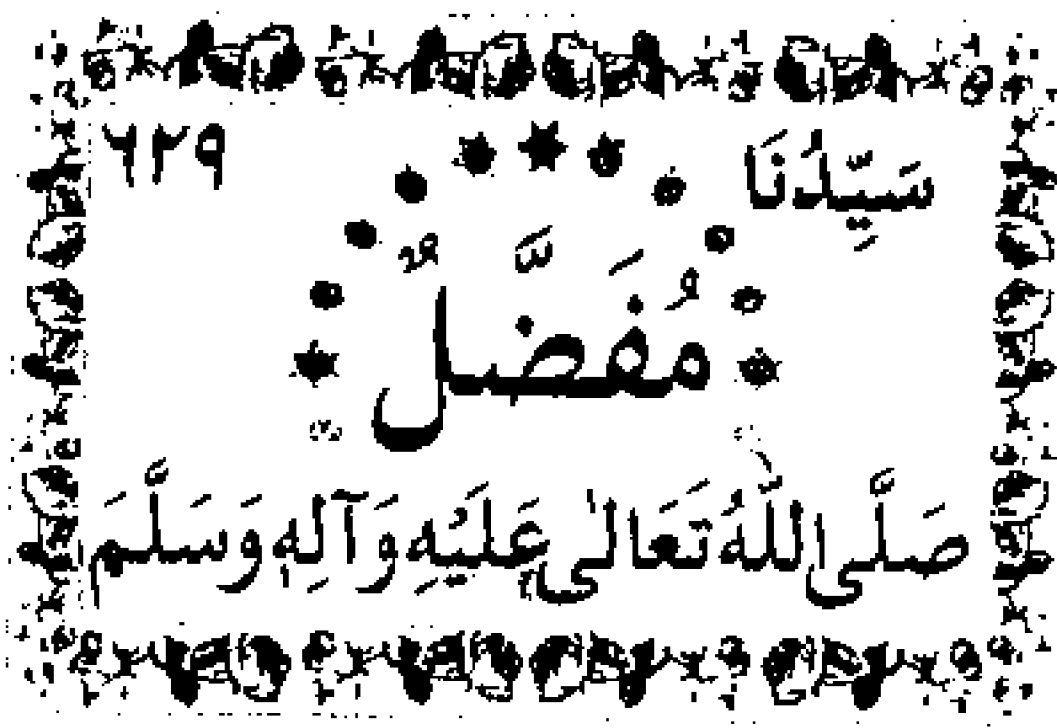 سَيِّدُنَا ٦٢٩
مُفَضَّلٌ
صَلَّى اللّٰهُ تَعَالٰى عَلَيْهِ وَآلِهٖ وَسَلَّمَ